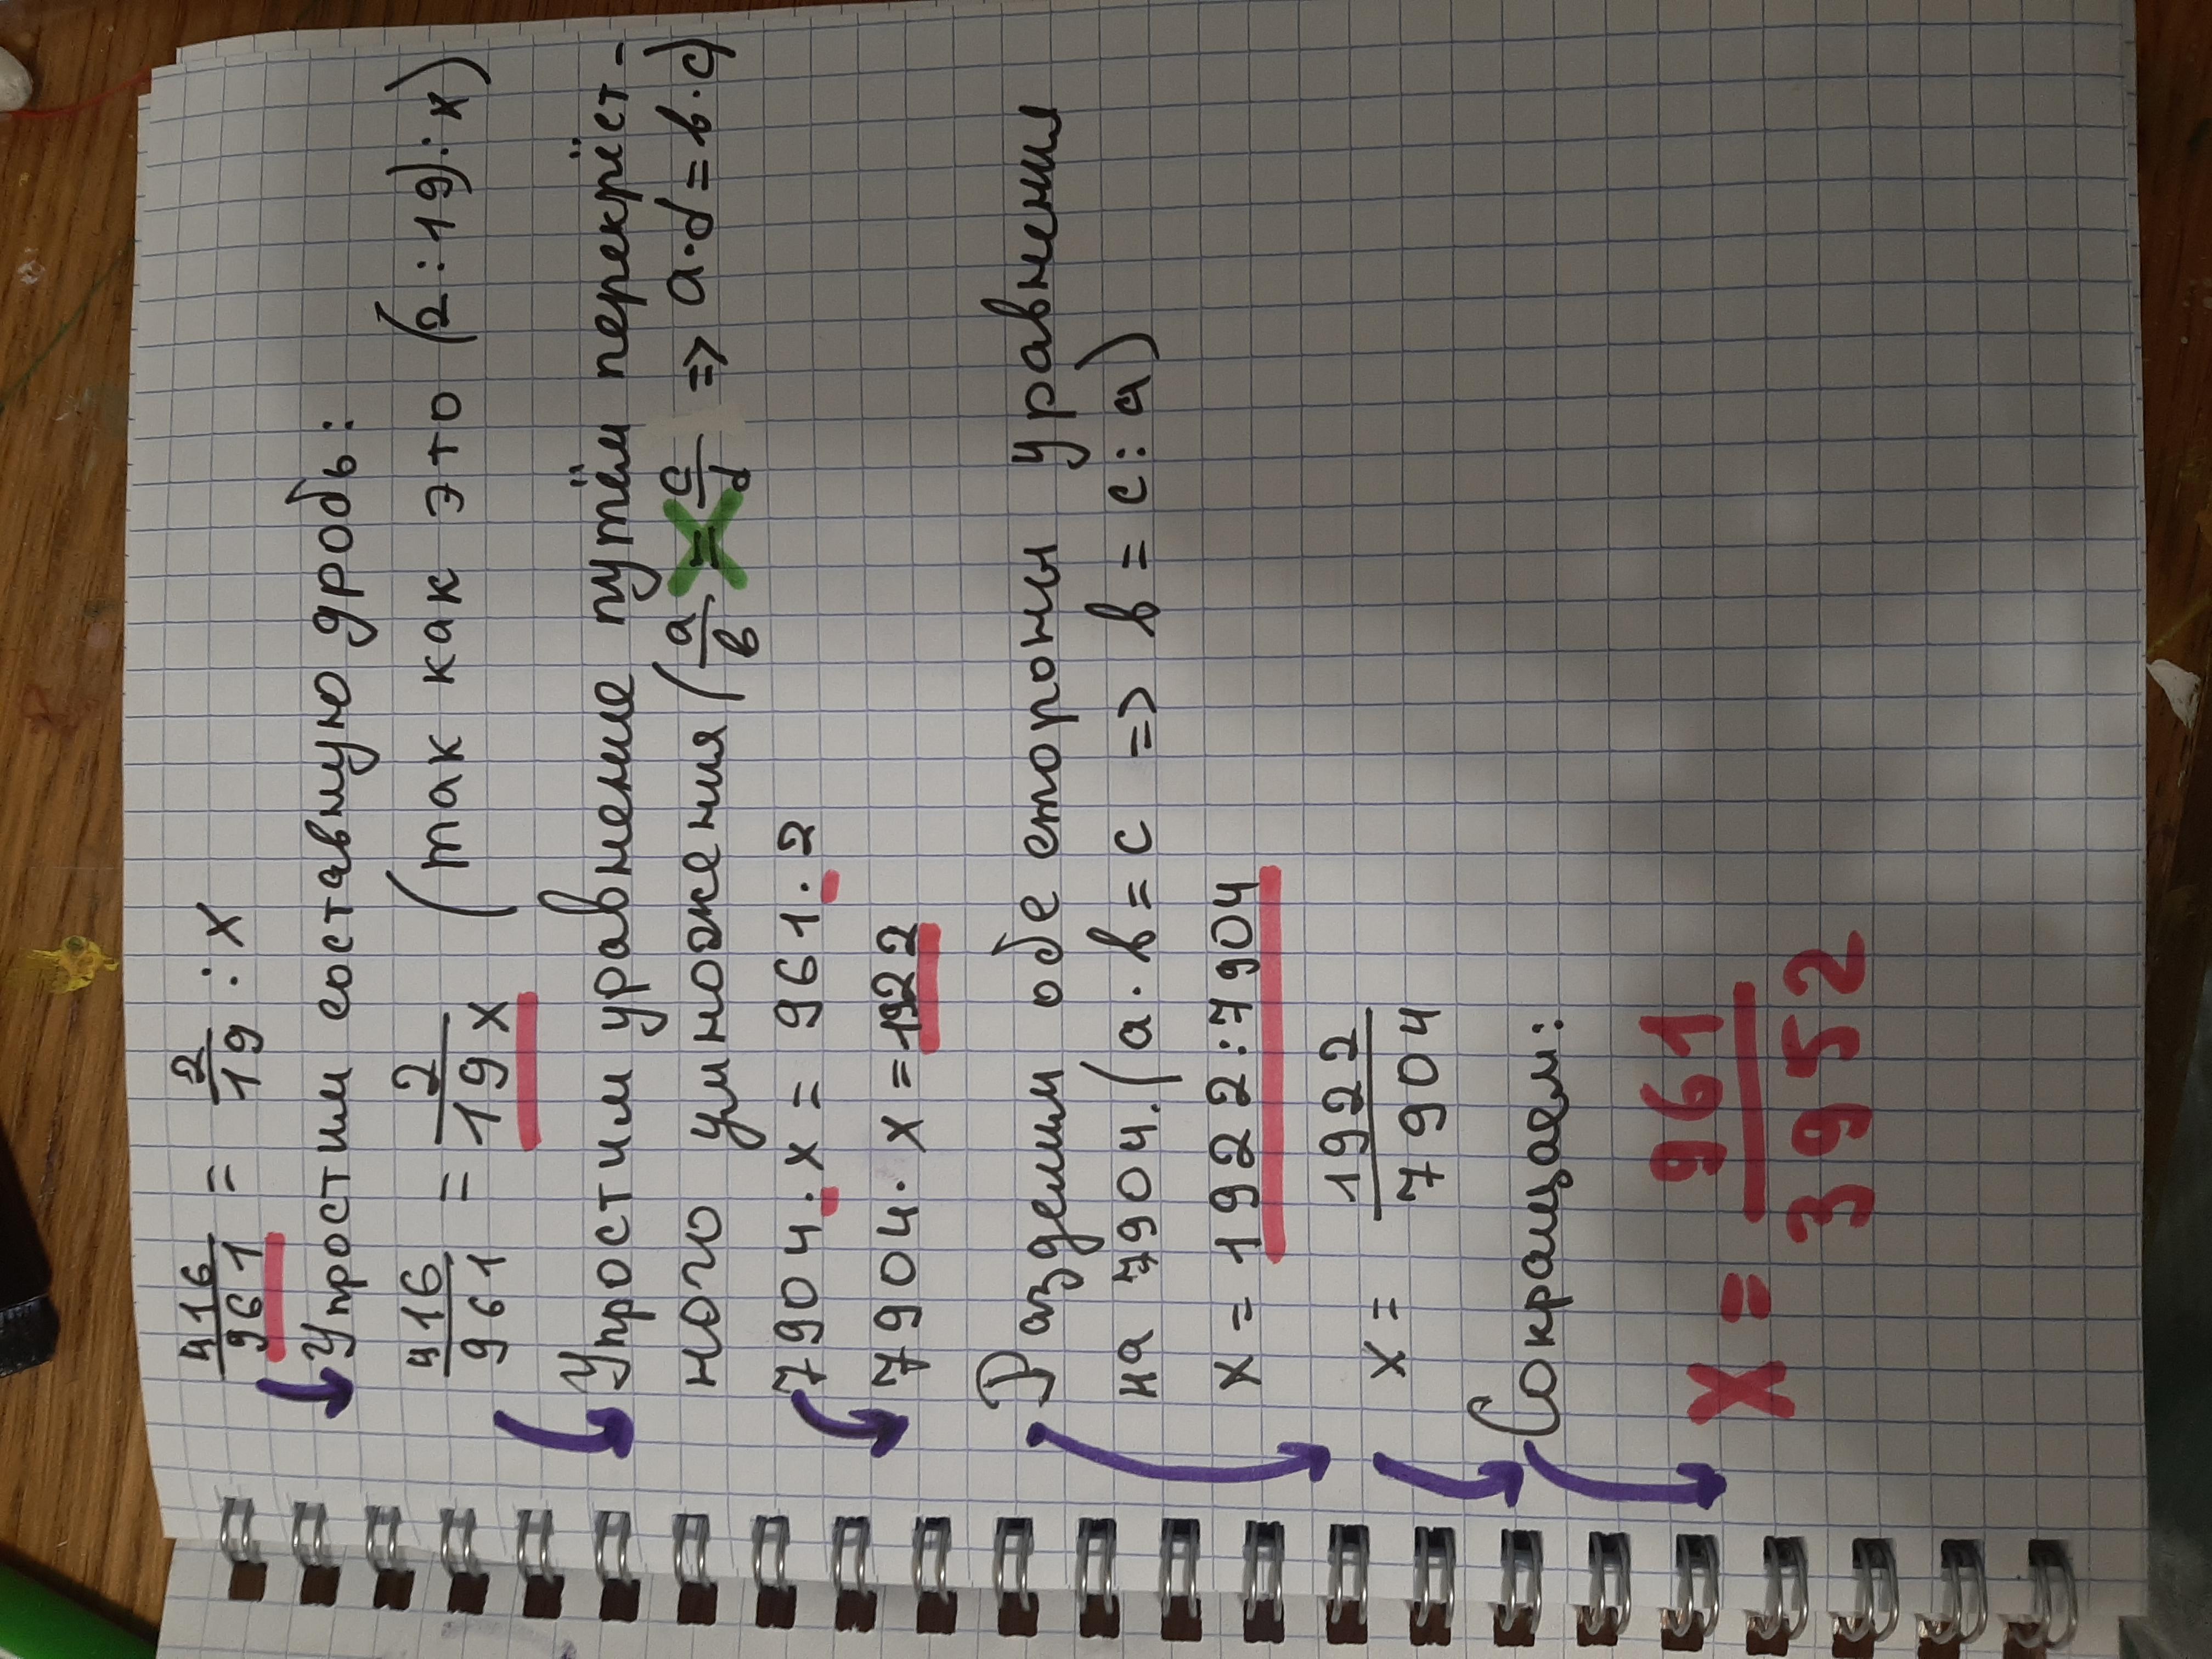 416/961 = 2/19 : x
Упростим составную дробь:
416/961 = 2/19x (так как это (2:19):x)
Упростим уравнение путём перекрёст-
ного умножения (a/b = c/d => a·d=b·c)
7904·x = 961·2
7904·x=1922
Разделим обе стороны уравнения
на 7904.(a·b=c => b=c:a)
x=1922:7904
x= 1922/7904
Сокращаем:
x= 961/3952